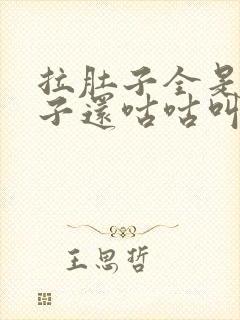 拉肚子全是
子還咕咕叫
王思哲